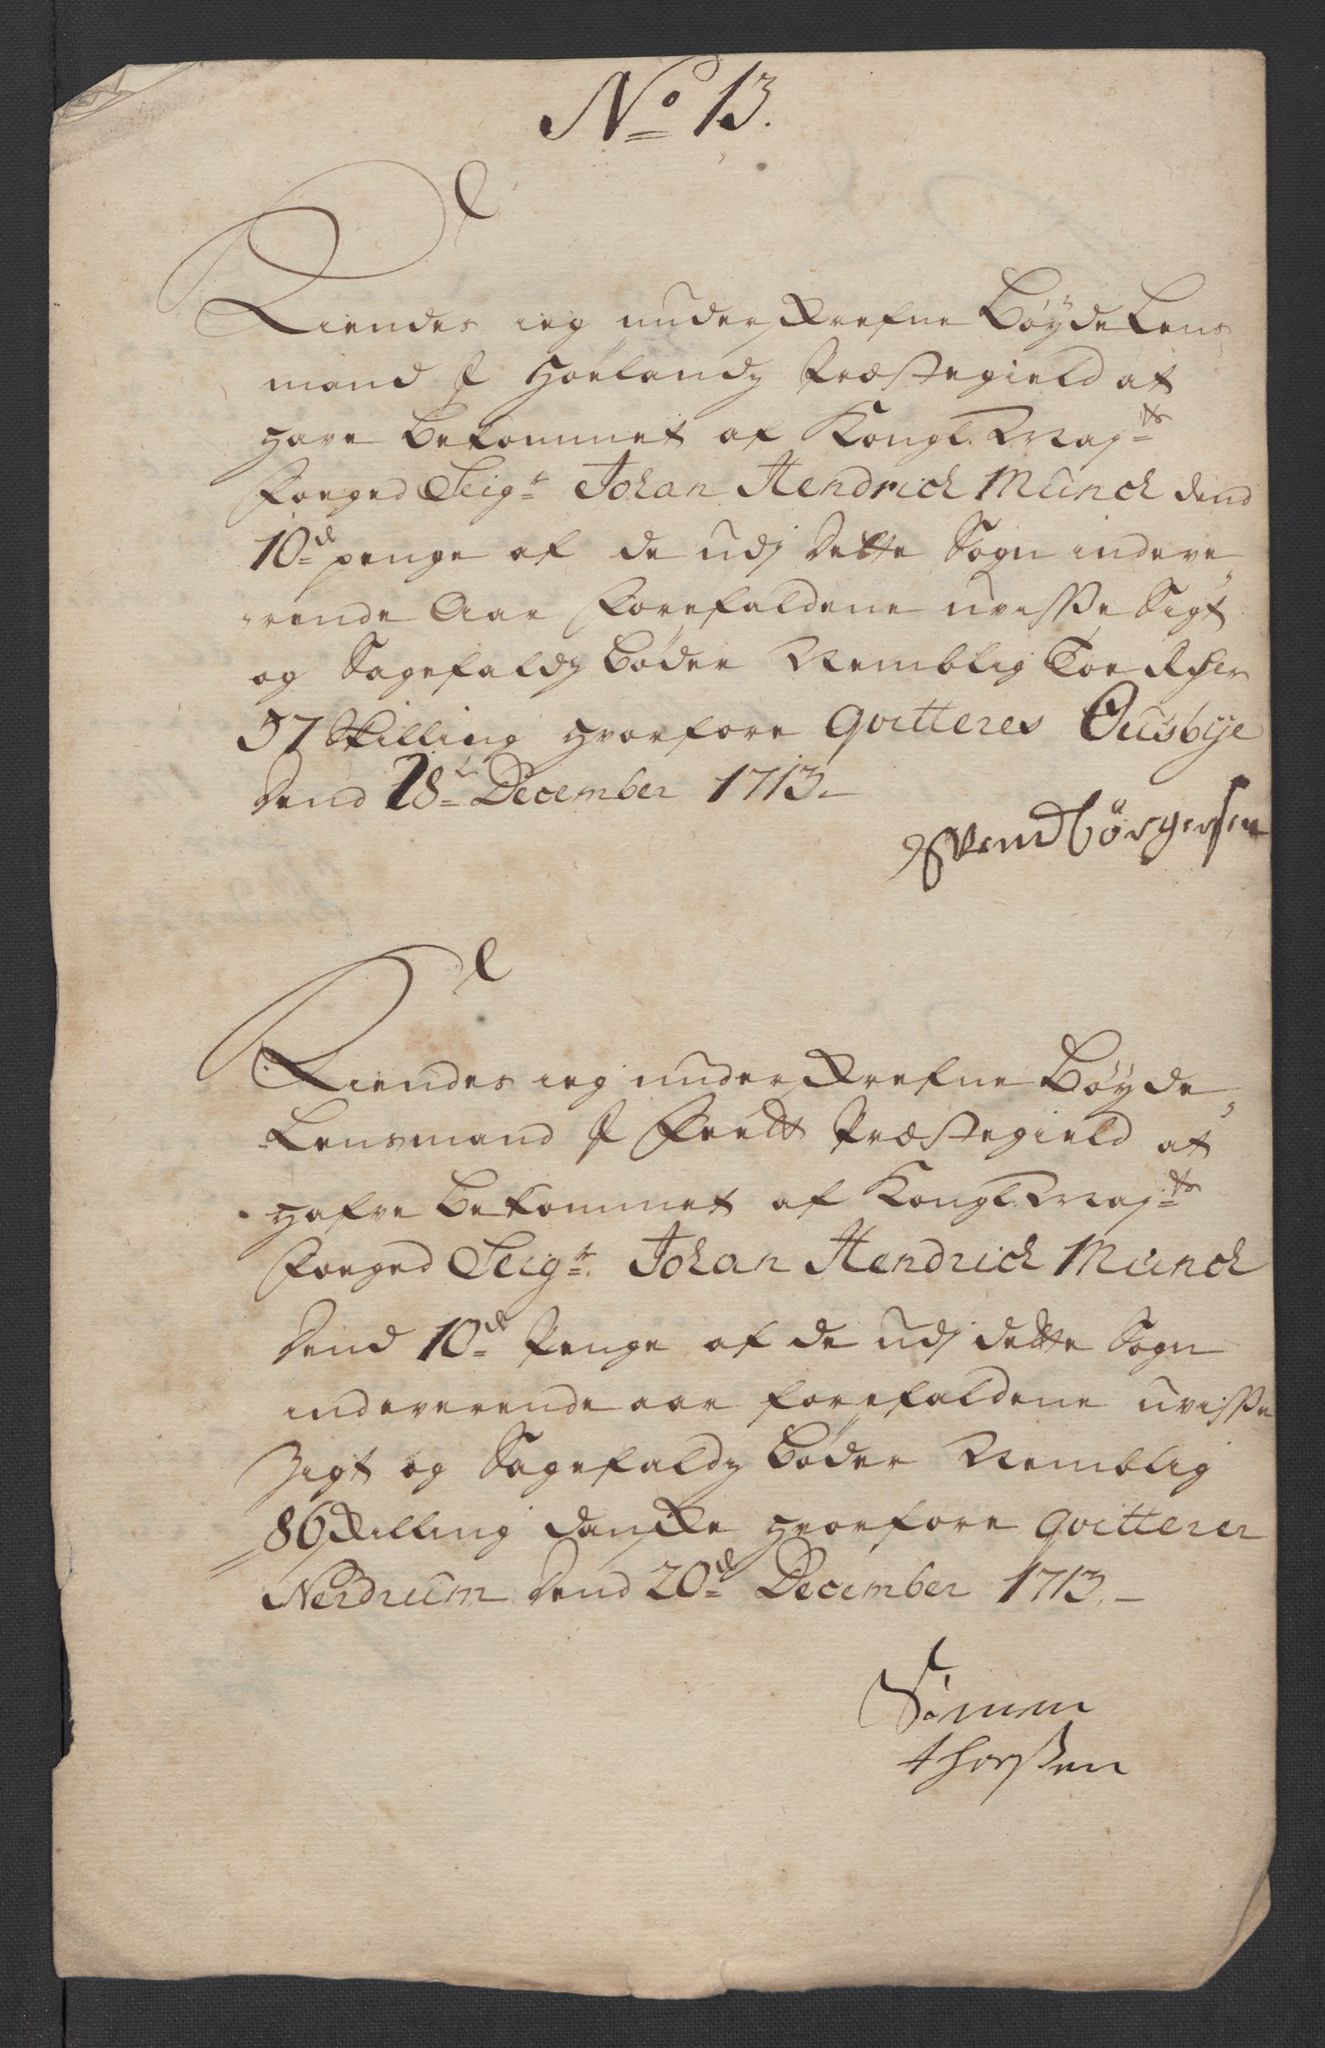 No 13.
Kiendes ieg underskrefne Bøyde Lens,
mand J Hørlandz Præstegield at
Have bekommet af Kongl. Mayts
Foeged Seigr. Johan Hendrich Münch dend
10de penge af de udj dette Sogn indeve,
rende Aar Forefaldene uvisse Sigt
og Sagefaldz bøder Nemblig Toe Rhsdr
37 Skilling Hvorfore qvitteres Ousbÿe
dend 28de December 1713.
Svend børgersen
Kiendes ieg underskrefne Bøyde,
Lensmand J Feedt Præstegield at
Hafve bekommet af Kongl. Mayts
Foeged Seigr. Johan Hendrich Münch
dend 10de Penge af de udj dette Sogn
indeverende aar forefaldene uvisse
Sigt og Sagefaldz bøder Nemblig
86 skilling danske Hvorfore qvitterer
Nerdrum dend 20de December 1713.
Simen
thorsen